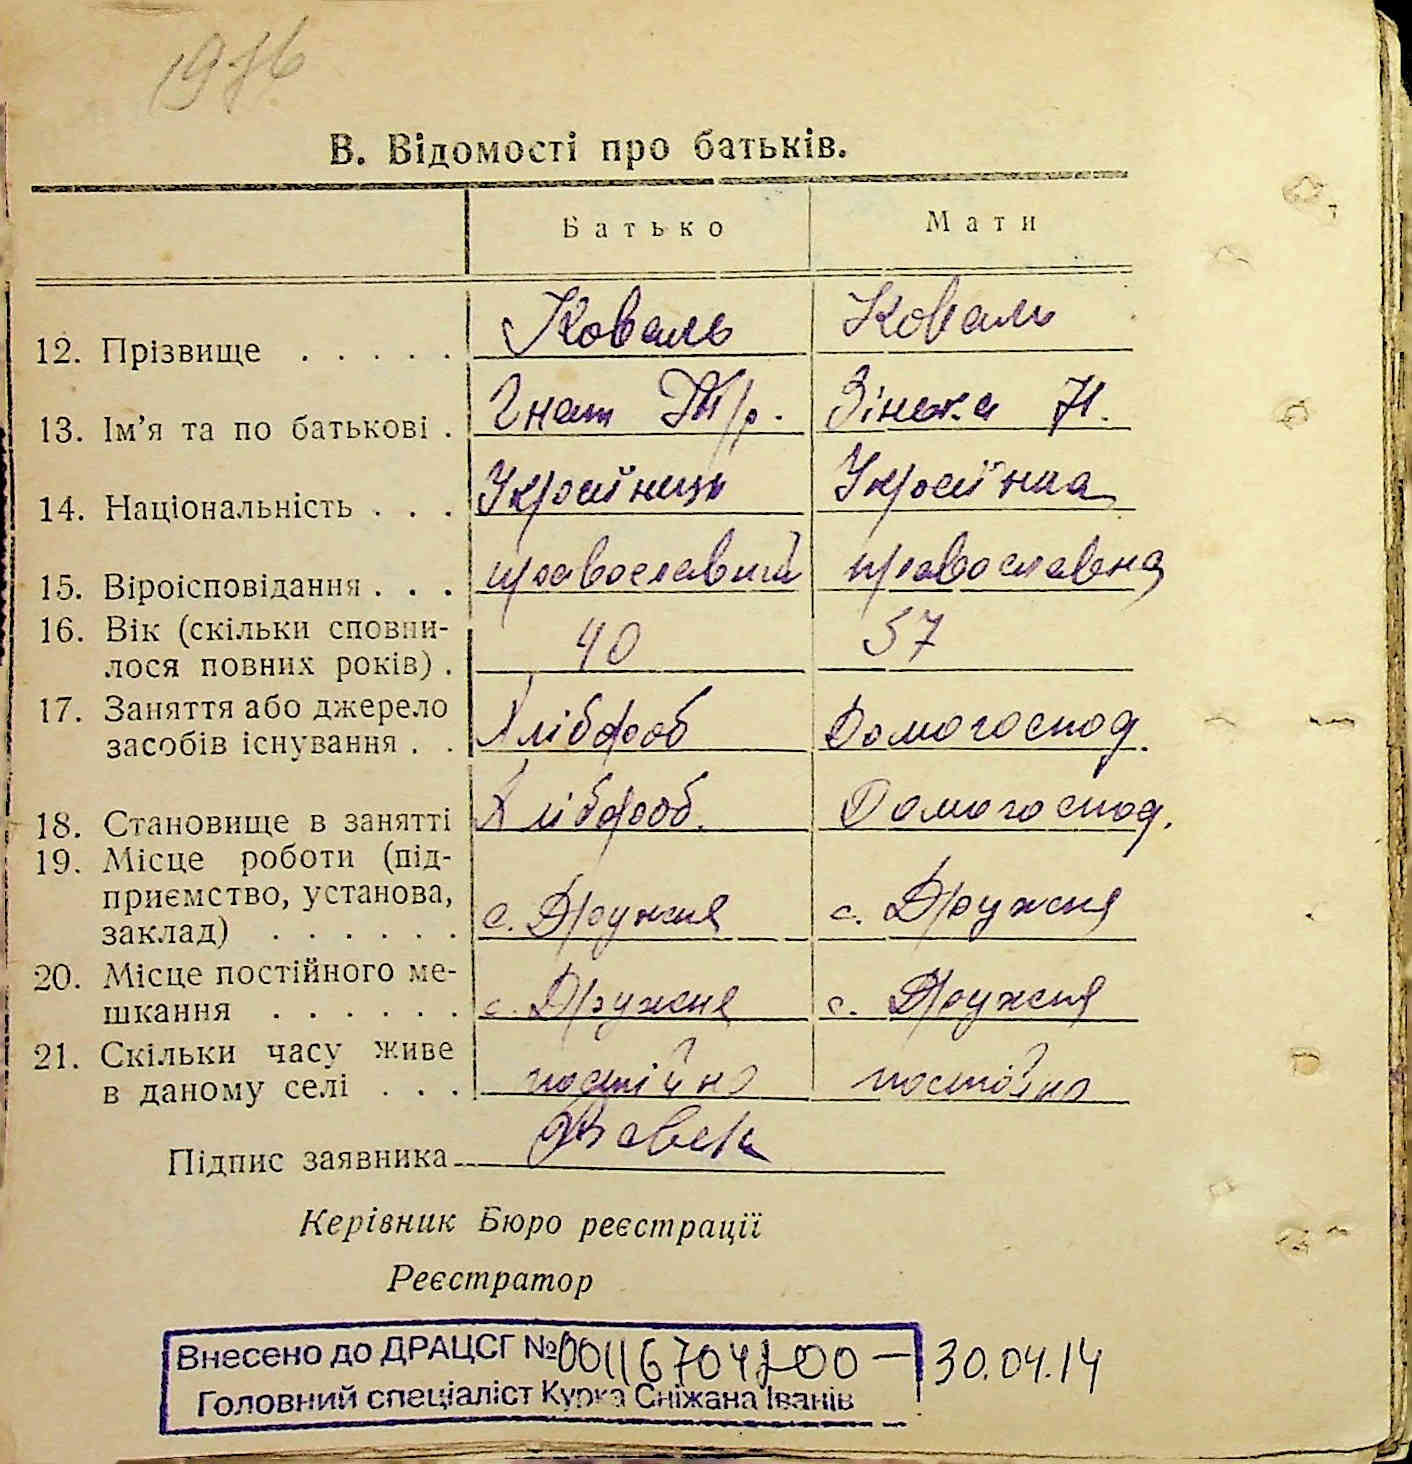 В. Відомості про батьків.
Батько Мати
12. Прізвище . . . . . Коваль Коваль
13. Ім'я та по батькові . Гнат Тр. Зінька Н.
14. Національність . . . Українець Українка
15. Віроісповідання . . . православний православна
16. Вік (скільки сповни-
лося повних років) . 40 37
17. Заняття або джерело
засобів існування . . Хлібороб Домогоспод.
18. Становище в занятті Хлібороб. Домогоспод.
19. Місце роботи (під-
приємство, установа,
заклад) . . . . . . с. Дружня с. Дружня
20. Місце постійного ме-
шкання . . . . . . с. Дружня с. Дружня
21. Скільки часу живе
в даному селі . . . постійно постійно
Підпис заявника
Керівник Бюро реєстрації
Реєстратор
Внесено до ДРАЦСГ № 30.04.14
Головний спеціаліст Курка Сніжана Іванів